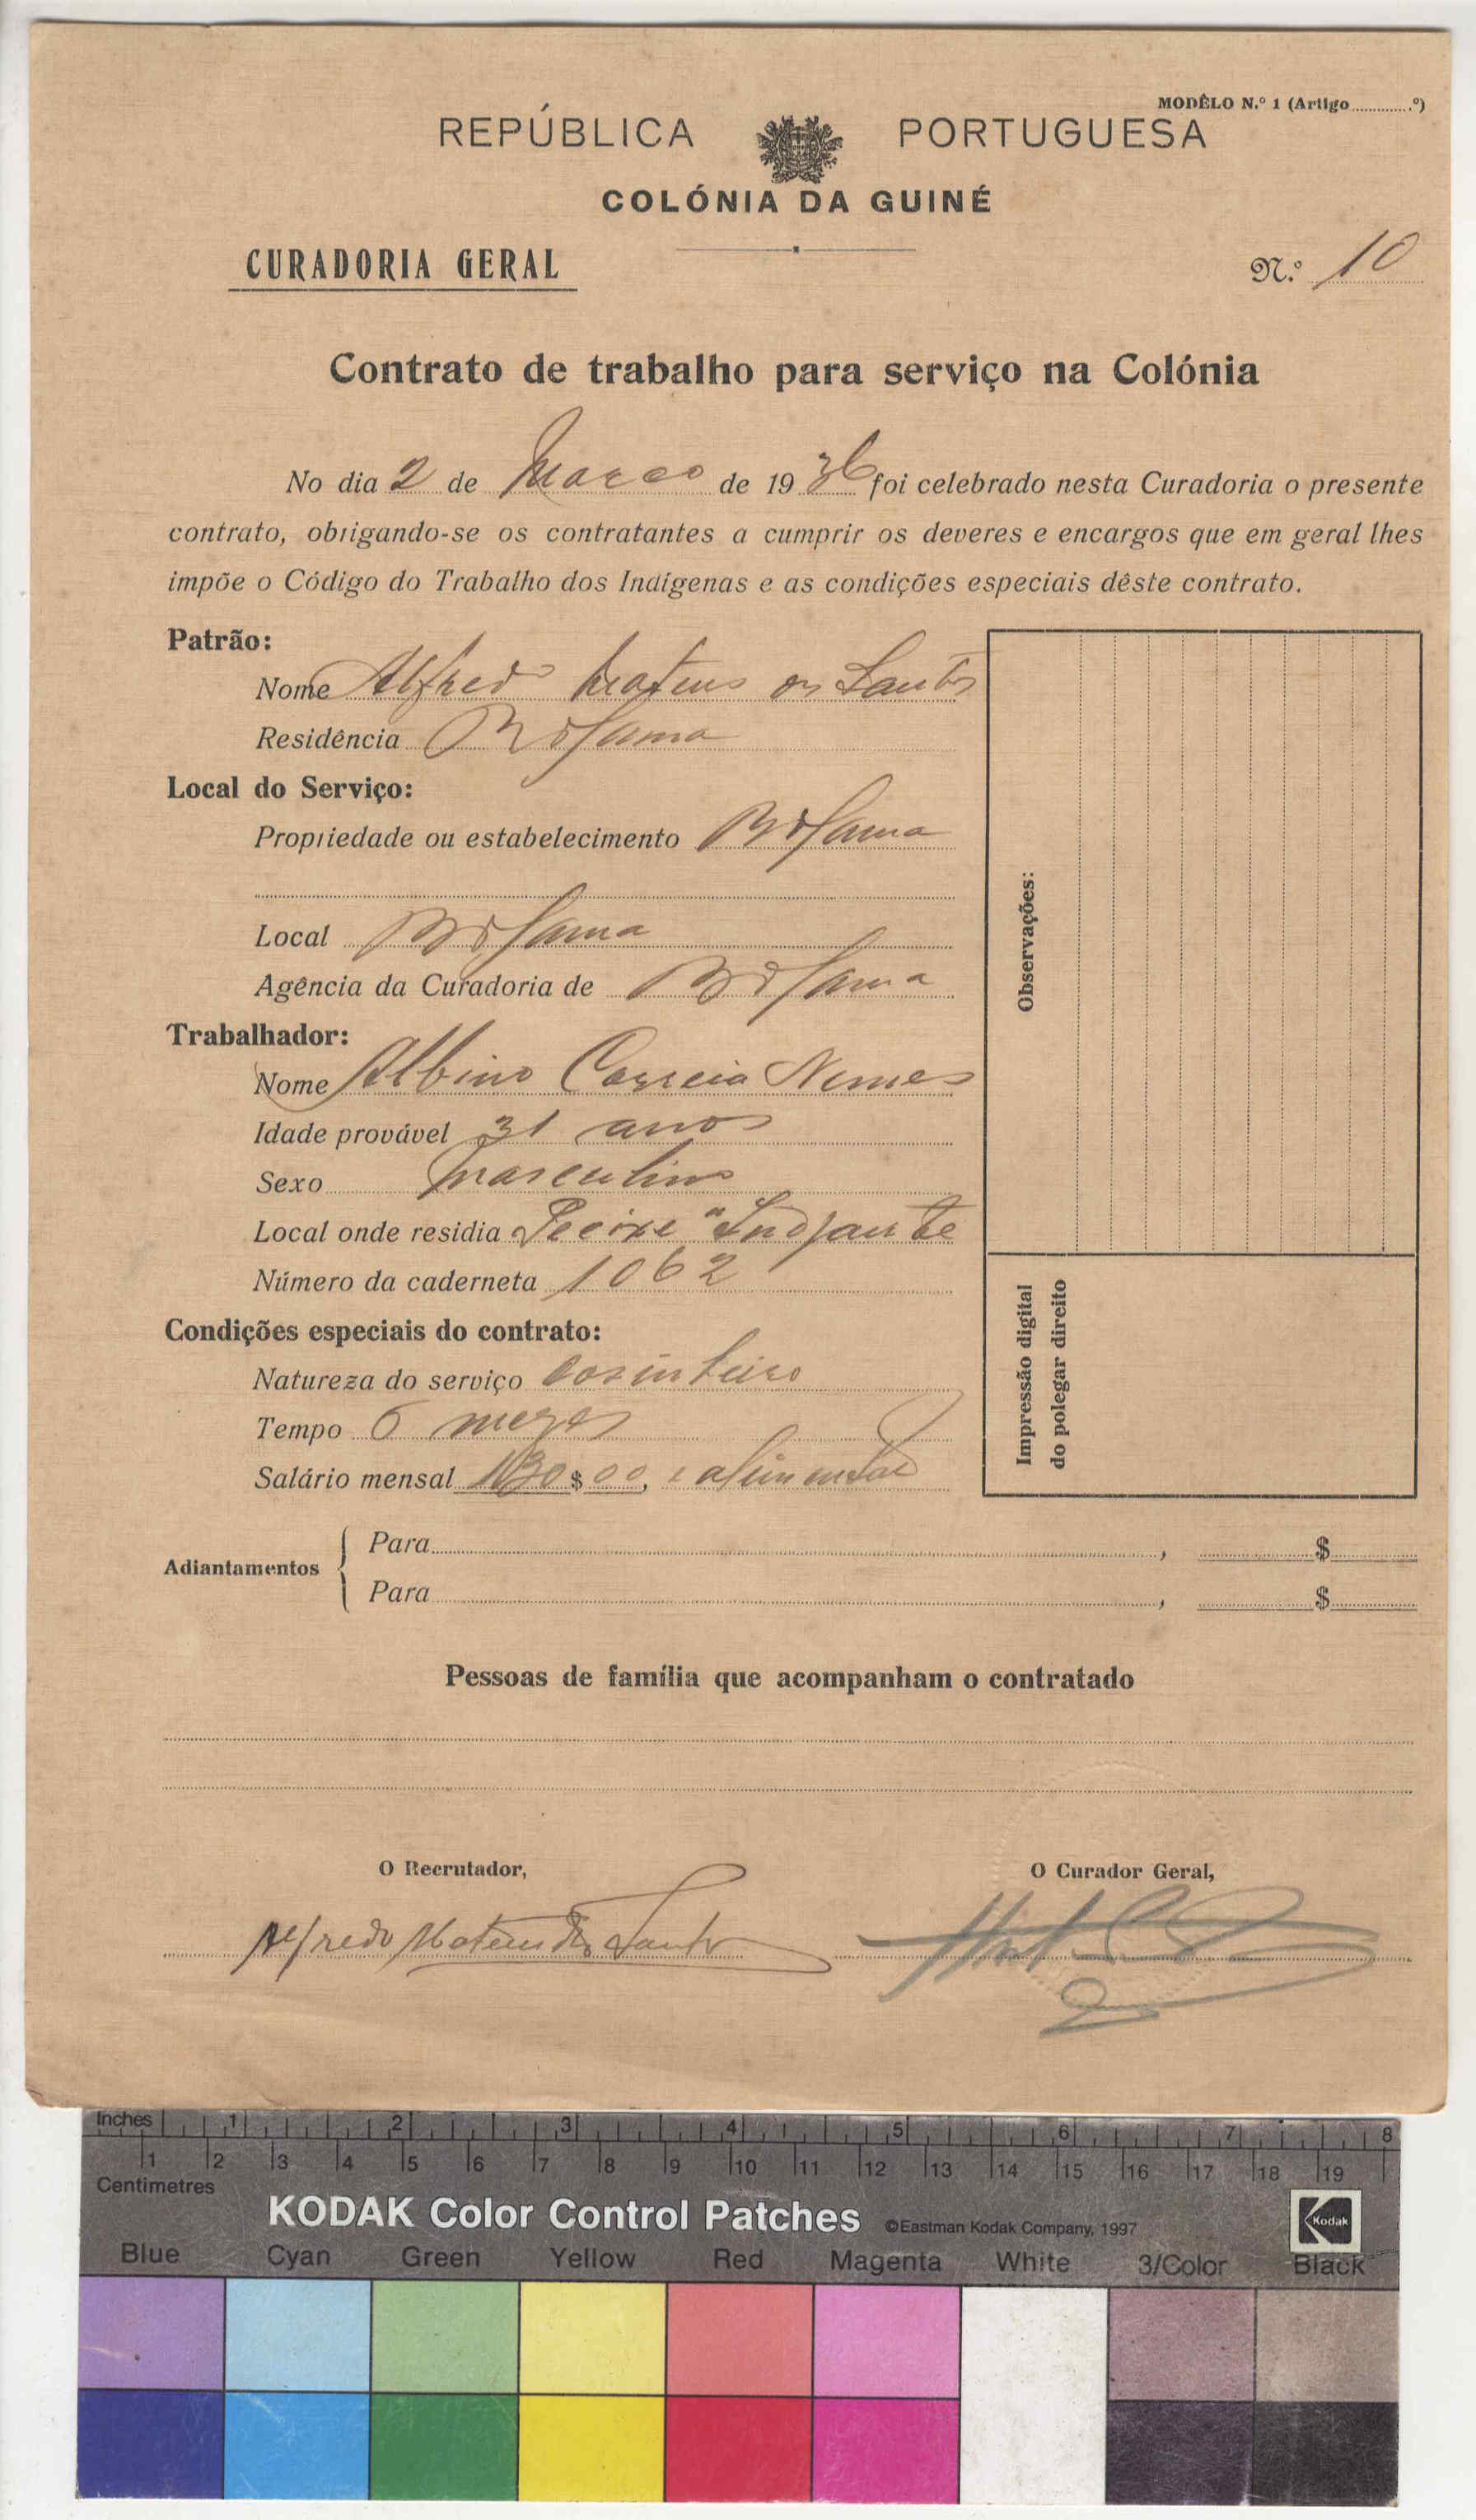 MODÊLO N.º 1 (Artigo .............º)
REPÚBLICA PORTUGUESA
COLÓNIA DA GUINÉ
CURADORIA GERAL
N.º 10
Contrato de trabalho para serviço na Colónia
No dia 2 de Março de 1936 foi celebrado nesta Curadoria o presente
contrato, obrigando-se os contratantes a cumprir os deveres e encargos que em geral lhes
impõe o Código do Trabalho dos Indígenas e as condições especiais dêste contrato.
Patrão:
Nome Alfredo Mateus dos Santos
Residência Bolama
Local do Serviço:
Propriedade ou estabelecimento Bolama
Local Bolama
Agência da Curadoria de Bolama
Trabalhador:
Nome Albino Correia Nunes
Idade provável 31 anos
Sexo masculino
Local onde residia Pecixe
Número da caderneta 1062
Condições especiais do contrato:
Natureza do serviço
Tempo 6 mezes
Salário mensal 130$00, e alimentação
Observações:
Impressão digital
do polegar direito
Adiantamentos
Para , $
Para , $
Pessoas de família que acompanham o contratado
O Recrutador,
O Curador Geral,
Alfredo Mateus dos Santos
Inches 1 2 3 4 5 6 7 8
1 2 3 4 5 6 7 8 9 10 11 12 13 14 15 16 17 18 19
Centimetres
KODAK Color Control Patches ©Eastman Kodak Company, 1997
Kodak
Blue Cyan Green Yellow Red Magenta White 3/Color Black